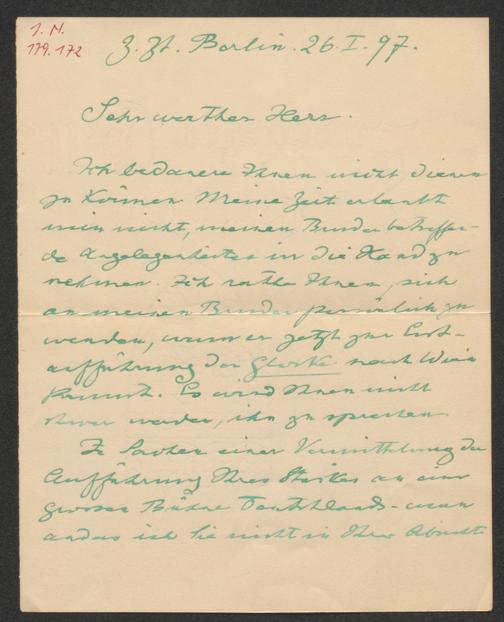 I. N.
179.172
Z. Zt. Berlin. 26.I.97.
Sehr werther Herr.
Ich bedauere Ihnen nicht dienen
zu können. Meine Zeit erlaubt
mir nicht, meinen Bruder betreffen-
de Angelegenheiten in die Hand zu
nehmen. Ich rathe Ihnen, sich
an meinen Bruder persönlich zu
wenden, wenn er jetzt zur Erst-
aufführung der Glocke nach Wien
kommt. Es wird Ihnen nicht
schwer werden, ihn zu sprechen.
In Sachen einer Vermittelung der
Aufführung Ihres Stückes an einer
grossen Bühne Deutschlands - wenn
anders ich Sie nicht in Ihrer Absicht